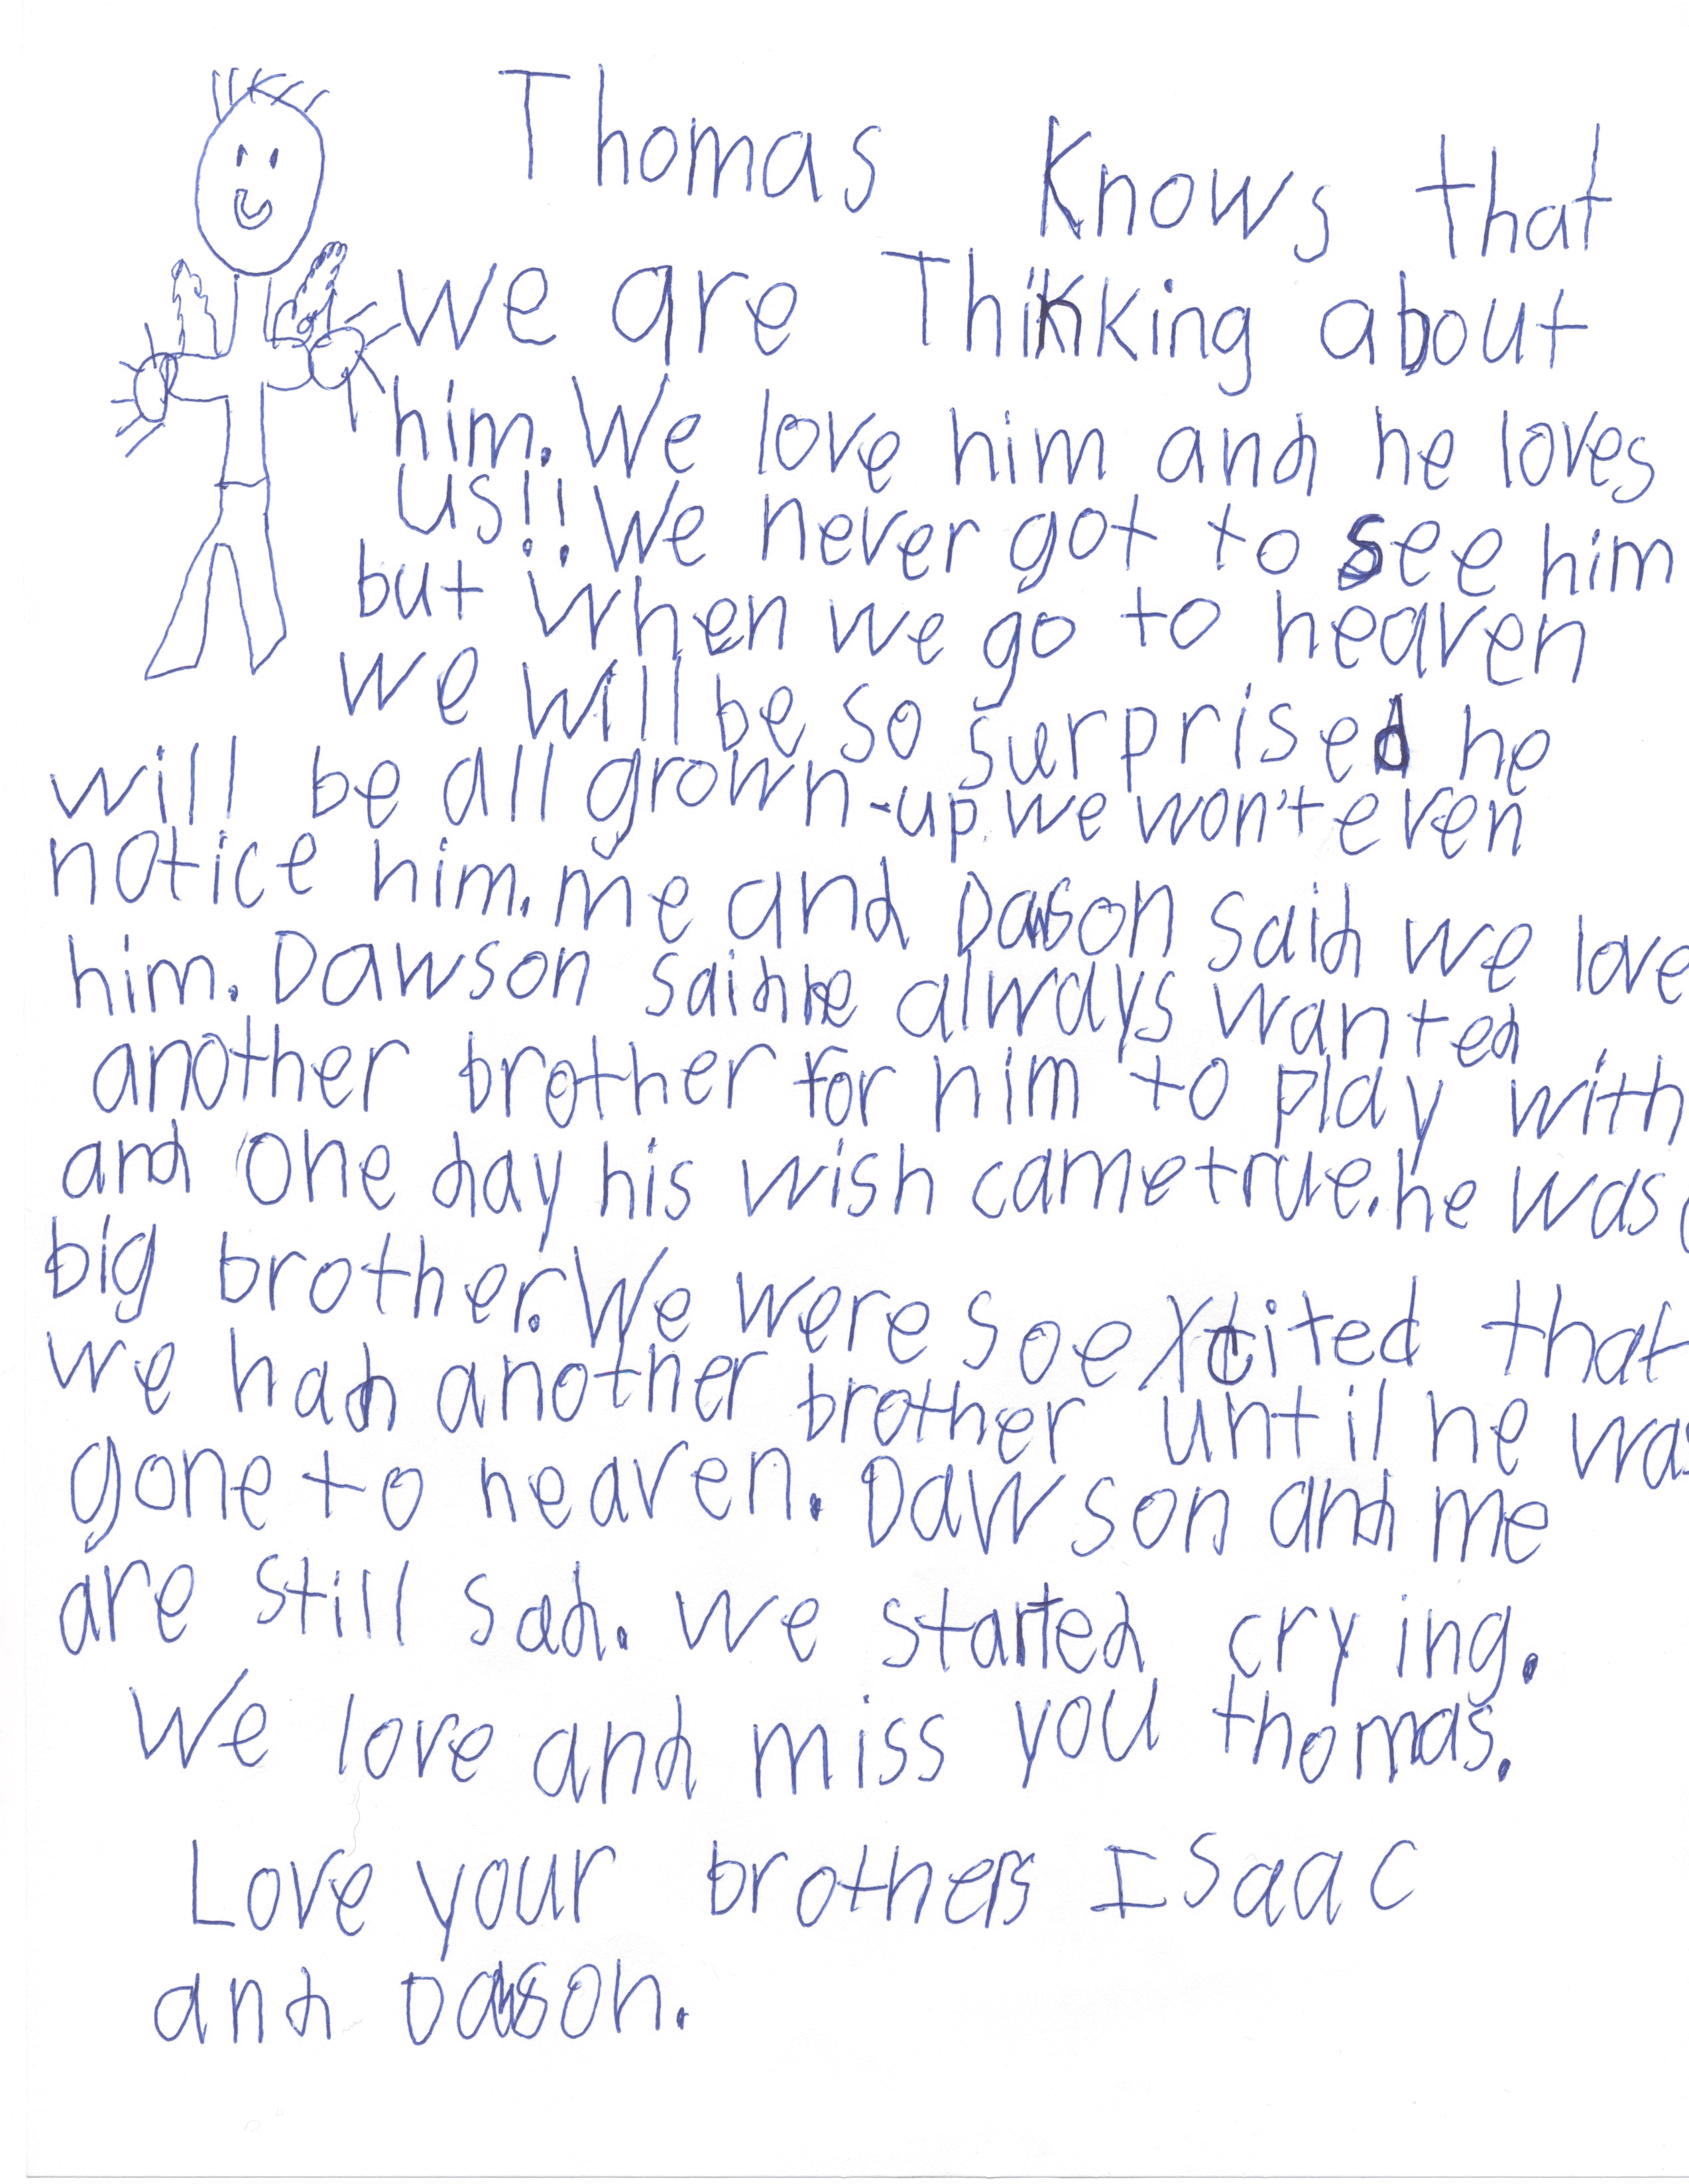 Thomas Knows that
we are Thinkking about
him. We love him and he loves
us!! We never got to see him
but when we go to heaven
we will be so surprised he
will be all grown-up. we won't even
notice him. me and Dawson said we love
him. Dawson said he always wanted
another brother for him to play with
and one day his wish came true. he was
big brother. We were so excited that
we had another brother until he was
gone to heaven. Dawson and me
are still sad. we started crying.
We love and miss you thomas.
Love your brothers Isaac
and Dawson.